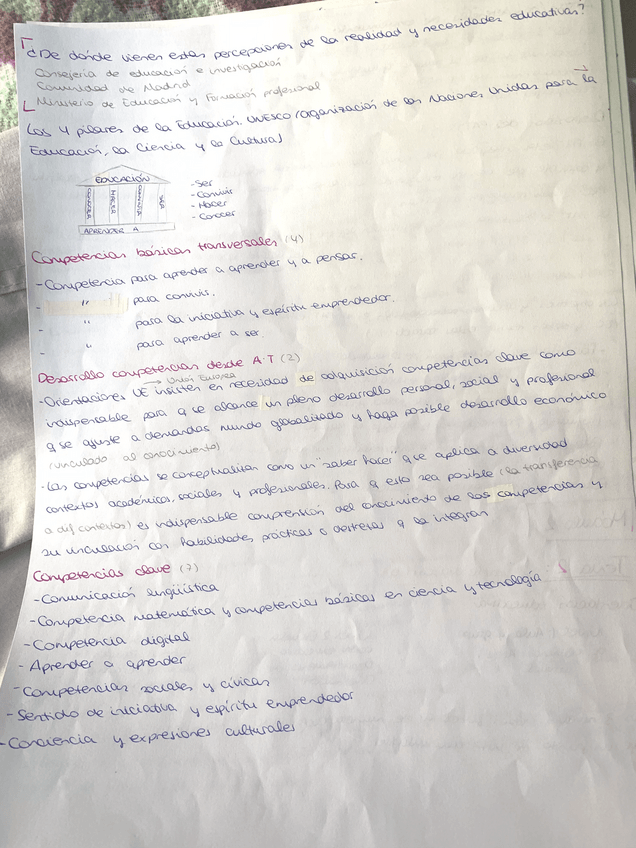 ¿De dónde vienen estas percepciones de la realidad y necesidades educativas?
Consejería de educación e investigación
Comunidad de Madrid
Ministerio de Educación y Formación profesional
Los 4 pilares de la Educación. UNESCO (organización de las Naciones Unidas para la
Educación, la Ciencia y la Cultura)
EDUCACIÓN
CONOCER
HACER
CONVIVIR
SER
APRENDER A
- Ser
- Convivir
- Hacer
- Conocer
Competencias básicas transversales (4)
- Competencia para aprender a aprender y a pensar.
- " para convivir.
- " para la iniciativa y espíritu emprendedor.
- " para aprender a ser
Desarrollo competencias desde A.T (2)
→ Unión Europea
- Orientaciones UE insisten en necesidad de adquisición competencias clave como
indispensable para q se alcance un pleno desarrollo personal, social y profesional
q se ajuste a demandas mundo globalizado y haga posible desarrollo económico
(vinculado al conocimiento)
· Las competencias se conceptualizan como un "saber hacer" que aplica a diversidad
contextos académicos, sociales y profesionales. Para q esto sea posible (la transferencia
a dif contextos) es indispensable comprensión del conocimiento de las competencias y
su vinculación con habilidades, prácticas o destrezas q la integran
Competencias clave (7)
- Comunicación lingüística
- Competencia matemática y competencias básicas en ciencia y tecnología
- Competencia digital
- Aprender a aprender
- Competencias sociales y cívicas
- Sentido de iniciativa y espíritu emprendedor
- Conciencia y expresiones culturales